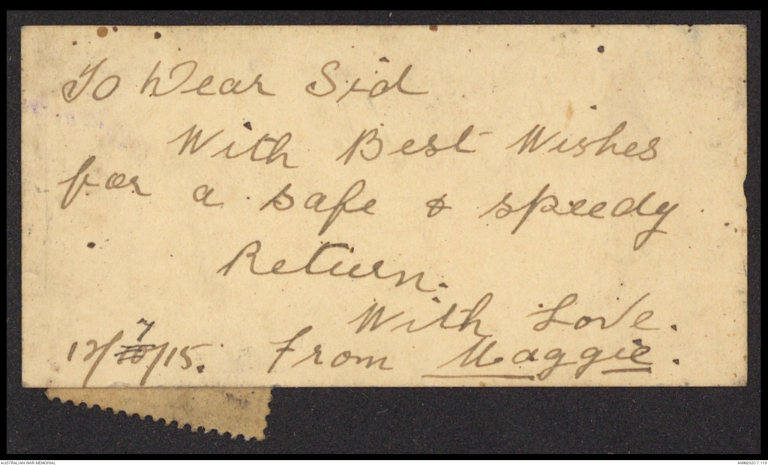 To Dear Sid
With Best Wishes
for a safe & speedy
Return.
With Love.
7
12/10/15. From Maggie.
AUSTRALIAN WAR MEMORIAL